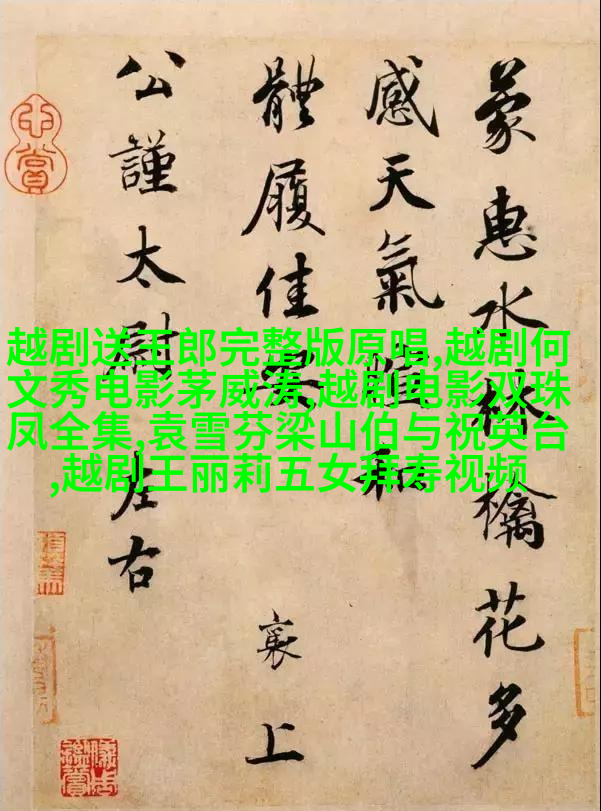 蒙惠水林檎花多
感天氣和
體履佳 襄上
公謹太尉左右
越剧送王郎完整版原唱,越剧何
文秀电影茅威涛,越剧电影双珠
凤全集,袁雪芬梁山伯与祝英台
,越剧王丽莉五女拜寿视频